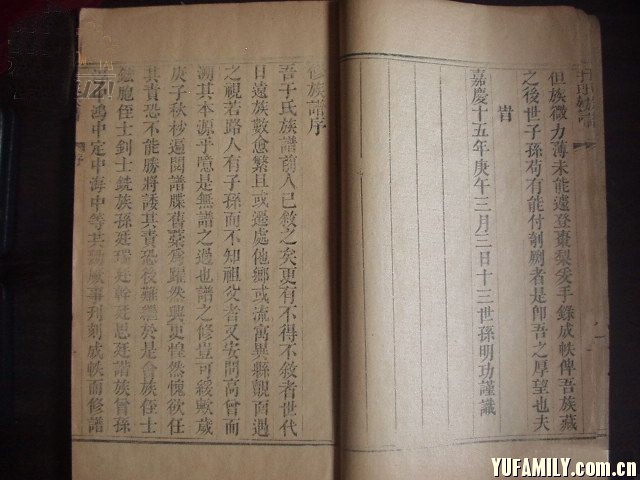 但族微力薄未能遽登棗梨爰手錄成帙俾吾族藏
之後世子孫苟有能付剞劂者是卽吾之厚望也夫
旹
嘉慶十五年庚午三月三日十三世孫明功謹識
修族譜序
吾于氏族譜前人已敘之矣更有不得不敘者世代
日遠族數愈繁且或遷處他鄉或流寓異縣覿面遇
之視若路人有子孫而不知祖父者又安問高曾而
溯其本源乎噫是無譜之過也譜之修豈可緩歟歲
庚子秋杪遍閱譜牒舊藁爲躍然興更惶然愧欲任
其責恐不能勝將諉其責恐後難繼於是會族侄士
鎡胞侄士釗士銑族孫廷瑞廷幹廷思廷諧族曾孫
鴻中定中海中等共勷厥事刋刻成帙而修譜
YUFAMILY.com.cn